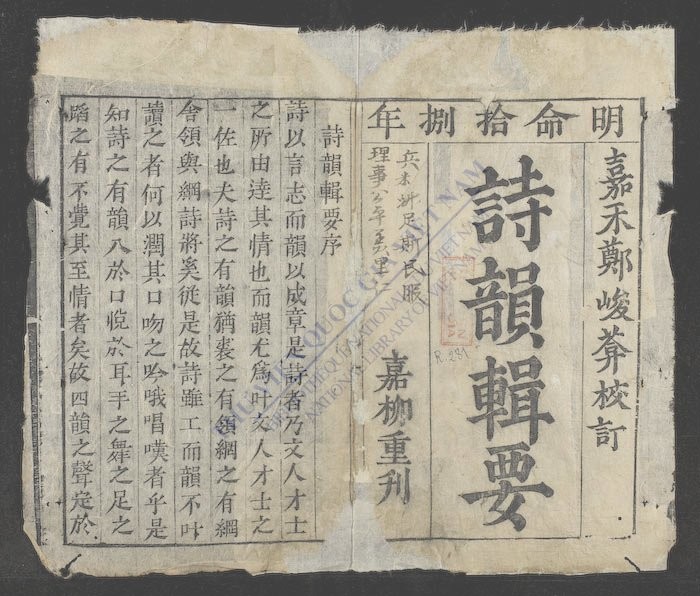 明命拾捌年
嘉禾鄭峻菶校訂
詩韻輯要
嘉柳重刊
理事公平義里仁
R.231
詩韻輯要序
詩以言志而韻以成章是詩者乃文人才士
之所由達其情也而韻尤爲叶文人才士之
一佐也夫詩之有韻猶裘之有領綱之有綱
舍領與綱詩將奚從是故詩雖工而韻不叶
讀之者何以潤其口吻之吟哦唱嘆者乎是
知詩之有韻入於口悅於耳手之舞之足之
蹈之有不覺其至情者矣故四韻之聲定於
THƯ VIỆN QUỐC GIA VIỆT NAM
BIBLIOTHÈQUE NATIONALE DU VIETNAM
NATIONAL LIBRARY OF VIETNAM